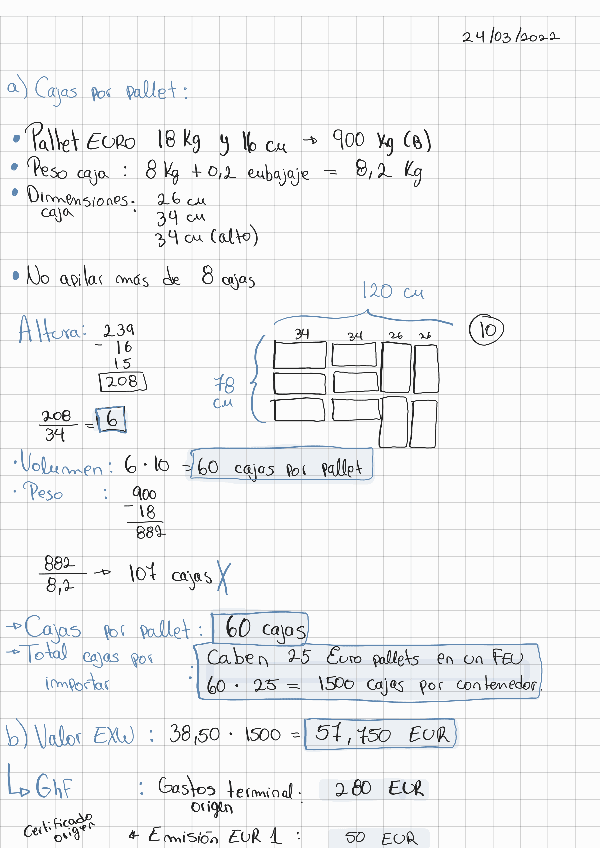 24/03/2022
a) Cajas por pallet:
• Pallet EURO 18 Kg y 16 cm → 900 Kg (B)
• Peso caja : 8 Kg + 0,2 embajaje = 8,2 Kg
• Dimensiones: 26 cm
caja 34 cm
34 cm (alto)
• No apilar más de 8 cajas
120 cm
Altura: 239
- 16
15
208
34 34 26 26
10
78
cm
208
34
= 6
• Volumen: 6 · 10 = 60 cajas por pallet
• Peso : 900
- 18
882
882
8,2
→ 107 cajas X
→ Cajas por pallet: 60 cajas
→ Total cajas por importar : Caben 25 Euro pallets en un FEU
60 · 25 = 1500 cajas por contenedor.
b) Valor EXW : 38,50 · 1500 = 57,750 EUR
↳ GhF : Gastos terminal: 280 EUR
origen
Certificado
origen
* Emisión EUR 1 : 50 EUR